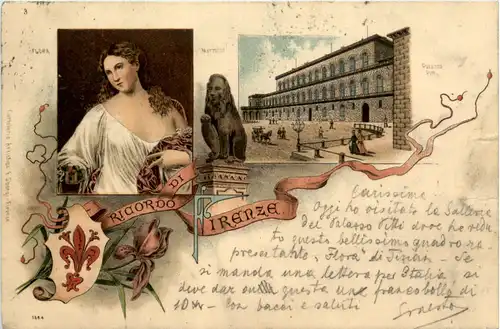 3
FLORA
MARZOCCO
Palazzo
Pitti
RICORDO DI
FIRENZE
Carissima
Oggi ho visitato la Galleria
del Palazzo Pitti dove ho vedu
to questo bellissimo quadro ra
presentante, "Flora" di Tizian - Se
si manda una lettera per Italia si
deve dar sulla questa une francobollo di
10 - Con baci e saluti
Ernesto